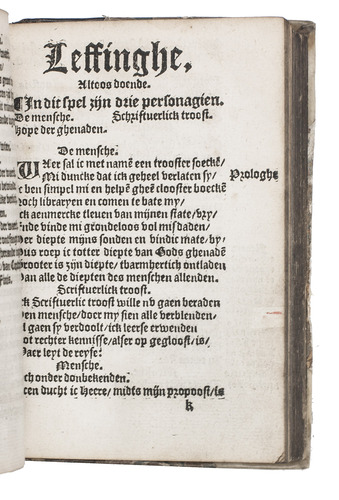 Leffinghe.
Altoos doende.
In dit spel zijn drie personagien.
De mensche. Schriftuerlick troost.
Hope der ghenaden.
De mensche.
WAer sal ic met namē een trooster soeckē/
Mi duncket dat ick geheel verlaten sy/ Prologhe
c ben simpel mi en helpē gheē clooster boeckē
och libraryen en comen te bate my/
ck aenmercke tleuen van mijnen state/ vry/
nde vinde mi grondeloos vol misdaden/
er diepte mijns sonden en vindic mate/ by/
us roep ic totter diepte van Gods ghenadē
rooter is zijn diepte/ tbarmhertich ontladen
an alle de diepten des menschen allenden.
Scriftuerlick troost.
ck Scriftuerlic troost wille nv gaen beraden
en mensche/ doer my sien alle verblenden/
l gaen sy verdoolt/ ick leerse erwenden
ot rechter kennisse/ alser op gegloost/ is/
aer leyt de reyse?
Mensche.
ch onder donbekenden.
en ducht ic Heere/ midts mijn propoost/ is
k